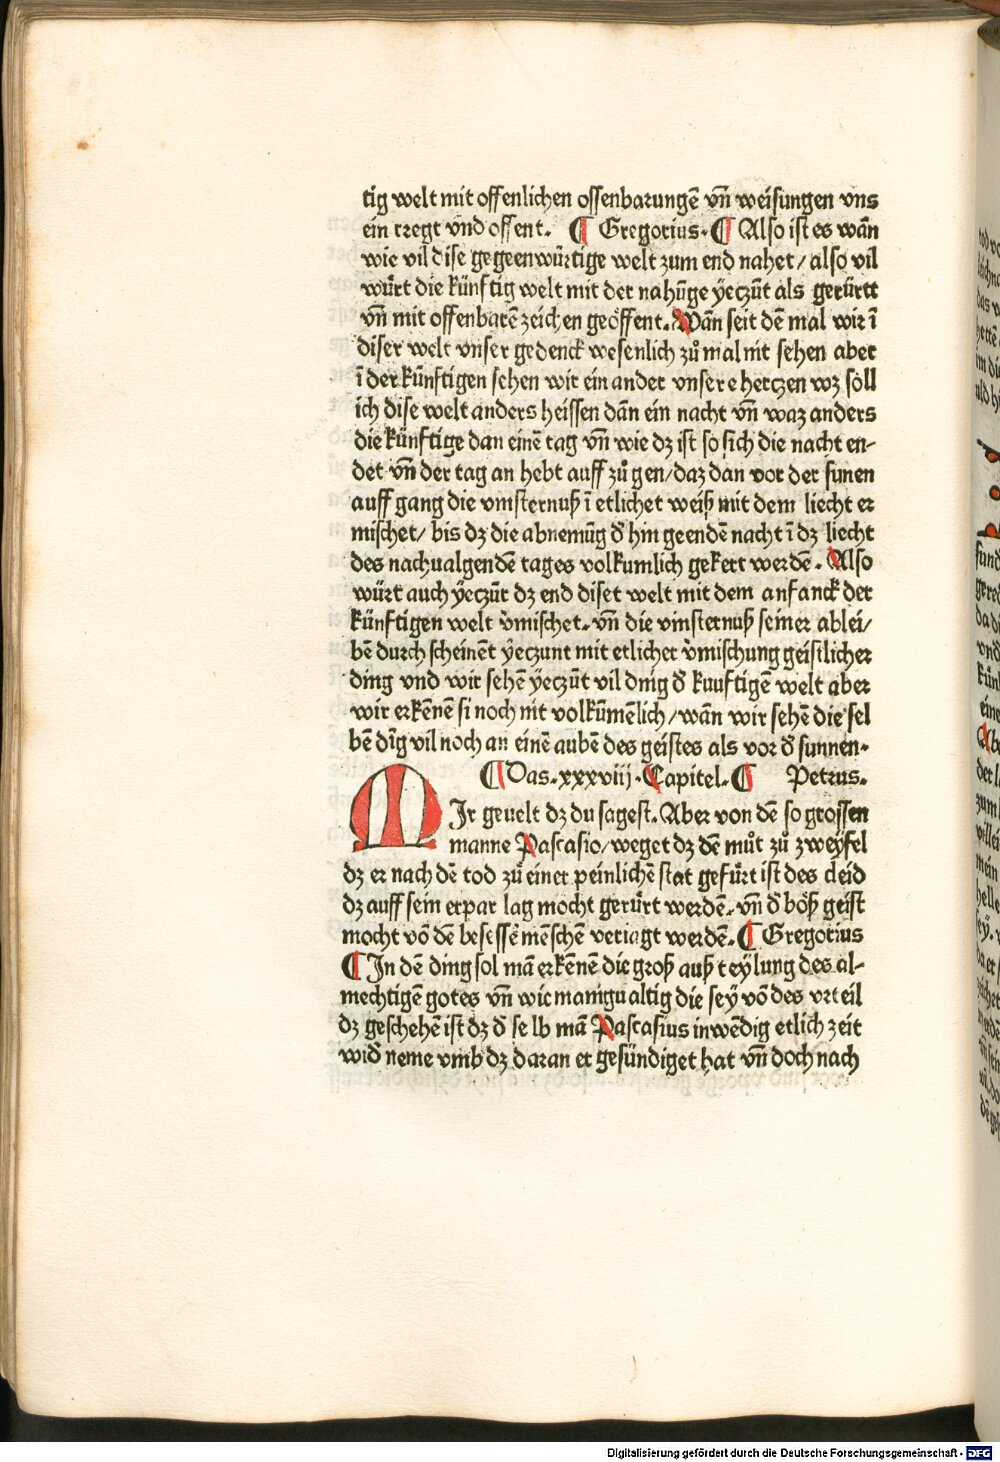 tig welt mit offenlichen offenbarungē vn̄ weisungen vns
ein tregt vnd offent. ¶ Gregorius. ¶ Also ist es wan̄
wie vil dise gegeenwürtige welt zum end nahet/ also vil
würt die künftig welt mit der nahūge ÿeczūt als gerürtt
vn̄ mit offenbarē zeichen geöffent. Wan̄ seit dē mal wir ī
diser welt vnser gedenck wesenlich zů mal nit sehen aber
ī der künftigen sehen wir ein ander vnsere hertzen wz soll
ich dise welt anders heissen dan̄ ein nacht vn̄ waz anders
die künftige dan einē tag vn̄ wie dz ist so sich die nacht en-
det vn̄ der tag an hebt auff zů gen/ daz dan vor der sunen
auff gang die vinsternuß ī etlicher weiß mit dem liecht er
mischet/ bis dz die abnemūg d̄ hin geendē nacht ī dz liecht
des nachualgendē tages volkumlich gekert werdē. Also
würt auch ÿeczūt dz end diser welt mit dem anfanck der
künftigen welt v̄mischet. vn̄ die vinsternuß seiner ablei/
bē durch scheinēt ÿeczunt mit etlicher v̄mischung geistlicher
ding vnd wir sehē ÿeczūt vil dnig d̄ kuuftigē welt aber
wir erkēnē si noch nit volkūmēlich/ wan̄ wir sehē die sel
bē dīg vil noch an einē aubē des geistes als vor d̄ sunnen.
¶ Das. xxxviij. Capitel. ¶ Petrus.
MIr geuelt dz du sagest. Aber von dē so grossen
manne Pascasio/ weget dz dē můt zů zweyfel
dz er nach dē tod zů einer peinlichē stat gefürt ist des cleid
dz auff sein erpar lag mocht gerürt werdē. vn̄ d̄ böß geist
mocht vō dē besessē mēschē veriagt werdē. ¶ Gregorius
¶ In dē ding sol mā erkēnē die groß auß teylung des al-
mechtigē gotes vn̄ wie manigualtig die seÿ vō des vrteil
dz geschehē ist dz d̄ selb mā Pascasius inwēdig etlich zeit
wid̄ neme vmb dz daran er gesündiget hat vn̄ doch nach
Digitalisierung gefördert durch die Deutsche Forschungsgemeinschaft - DFG